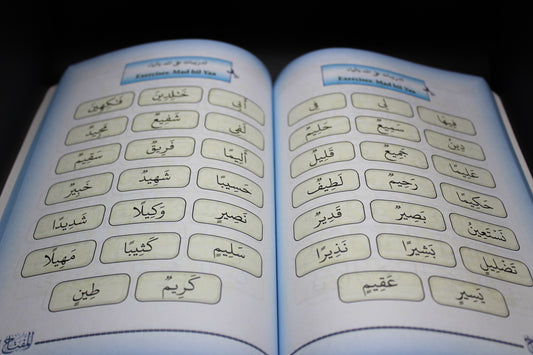 تدريبات على المد بالياء
Exercises Mad bil Yaa
فِيهَا لِي فِي
دِينِ سَمِيعٌ حَلِيمٌ
عَلِيمًا جَمِيعٌ قَلِيلٌ
حَكِيمًا رَجِيمٌ لَطِيفٌ
نَسْتَعِينُ بَصِيرٌ قَدِيرٌ
تَضْلِيلٍ بَشِيرًا نَذِيرًا
يَسِيرٍ عَقِيمٍ
المفتاح
تدريبات على المد بالياء
Exercises Mad bil Yaa
أَبِي خَٰلِدِينَ فَٰكِهِينَ
لَفِي شَفِيعٌ مَجِيدٌ
أَلِيمًا فَرِيقٌ سَقِيمٌ
حَسِيبًا شَهِيدٌ خَبِيرٌ
نَصِيرٍ وَكِيلًا شَدِيدًا
سَلِيمٍ كَثِيبًا مَهِيلًا
كَرِيمٌ طِينٍ
المفتاح